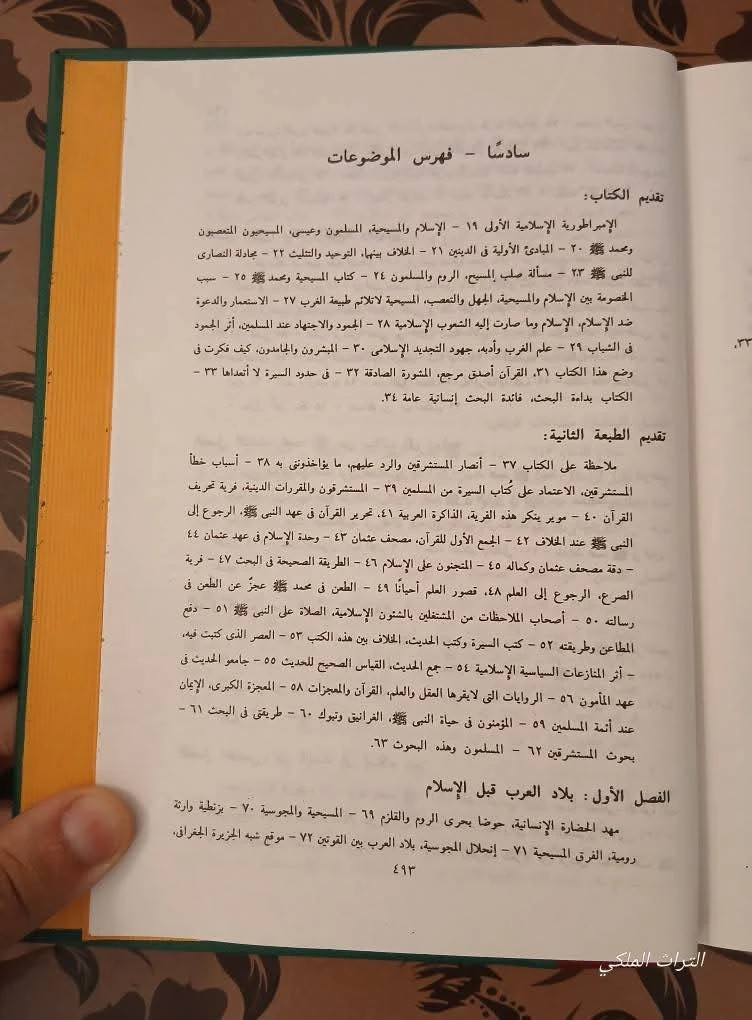 سادسًا – فهرس الموضوعات
تقديم الكتاب:
الإمبراطورية الإسلامية الأولى ١٩ – الإسلام والمسيحية، المسلمون وعيسى، المسيحيون المتعصبون
ومحمد ﷺ ٢٠ – المبادئ الأولية فى الدينين ٢١ – الخلاف بينهما، التوحيد والتثليث ٢٢ – مجادلة النصارى
للنبى ﷺ ٢٣ – مسألة صلب المسيح، الروم والمسلمون ٢٤ – كتاب المسيحية ومحمد ﷺ ٢٥ – سبب
الخصومة بين الإسلام والمسيحية، الجهل والتعصب، المسيحية لاتلائم طبيعة الغرب ٢٧ – الاستعمار والدعوة
ضد الإسلام، الإسلام وما صارت إليه الشعوب الإسلامية ٢٨ – الجمود والاجتهاد عند المسلمين، أثر الجمود
فى الشباب ٢٩ – علم الغرب وأدبه، جهود التجديد الإسلامى ٣٠ – المبشرون والجامدون، كيف فكرت فى
وضع هذا الكتاب ٣١، القرآن أصدق مرجع، المشورة الصادقة ٣٢ – فى حدود السيرة لا أتعداها ٣٣ –
الكتاب بداءة البحث، فائدة البحث إنسانية عامة ٣٤.
تقديم الطبعة الثانية:
ملاحظة على الكتاب ٣٧ – أنصار المستشرقين والرد عليهم، ما يؤاخذوننى به ٣٨ – أسباب خطأ
المستشرقين، الاعتماد على كُتاب السيرة من المسلمين ٣٩ – المستشرقون والمقررات الدينية، فرية تحريف
القرآن ٤٠ – موير ينكر هذه الفرية، الذاكرة العربية ٤١، تحرير القرآن فى عهد النبى ﷺ، الرجوع إلى
النبى ﷺ عند الخلاف ٤٢ – الجمع الأول للقرآن، مصحف عثمان ٤٣ – وحدة الإسلام فى عهد عثمان ٤٤
– دقة مصحف عثمان وكماله ٤٥ – المتجنون على الإسلام ٤٦ – الطريقة الصحيحة فى البحث ٤٧ – فرية
الصرع، الرجوع إلى العلم ٤٨، قصور العلم أحيانًا ٤٩ – الطعن فى محمد ﷺ عجزٌ عن الطعن فى
رسالته ٥٠ – أصحاب الملاحظات من المشتغلين بالشئون الإسلامية، الصلاة على النبى ﷺ ٥١ – دفع
المطاعن وطريقته ٥٢ – كتب السيرة وكتب الحديث، الخلاف بين هذه الكتب ٥٣ – العصر الذى كتبت فيه،
– أثر المنازعات السياسية الإسلامية ٥٤ – جمع الحديث، القياس الصحيح للحديث ٥٥ – جامعو الحديث فى
عهد المأمون ٥٦ – الروايات التى لايقرها العقل والعلم، القرآن والمعجزات ٥٨ – المعجزة الكبرى، الإيمان
عند أئمة المسلمين ٥٩ – المؤمنون فى حياة النبى ﷺ، الغرانيق وتبوك ٦٠ – طريقتى فى البحث ٦١ –
بحوث المستشرقين ٦٢ – المسلمون وهذه البحوث ٦٣.
الفصل الأول: بلاد العرب قبل الإسلام
مهد الحضارة الإنسانية، حوضا بحرى الروم والقلزم ٦٩ – المسيحية والمجوسية ٧٠ – بزنطية وارثة
رومية، الفرق المسيحية ٧١ – إنحلال المجوسية، بلاد العرب بين القوتين ٧٢ – موقع شبه الجزيرة الجغرافى،
٤٩٣
٣٣،
التراث الملكي